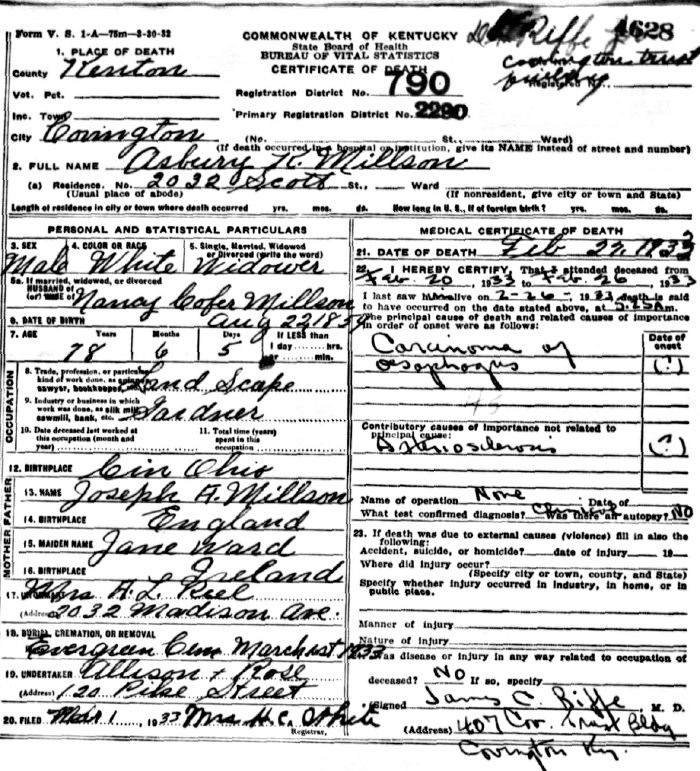 Form V. S. 1-A—75m—3-30-32
COMMONWEALTH OF KENTUCKY
State Board of Health
BUREAU OF VITAL STATISTICS
CERTIFICATE OF DEATH
Riffe
4628
Covington trust
building
Registered No.
1. PLACE OF DEATH
County Kenton
Registration District No. 790
Vot. Pct.
Inc. Town
Primary Registration District No. 2280
City Covington (No. St., Ward)
(If death occurred in a hospital or institution, give its NAME instead of street and number)
2. FULL NAME Asbury H. Millson
(a) Residence. No. 2032 Scott St., Ward
(Usual place of abode) (If nonresident, give city or town and State)
Length of residence in city or town where death occurred yrs. mos. ds. How long in U. S., if of foreign birth? yrs. mos. ds.
PERSONAL AND STATISTICAL PARTICULARS
3. SEX 4. COLOR OR RACE 5. Single, Married, Widowed or Divorced (write the word)
Male White Widower
5a. If married, widowed, or divorced
HUSBAND of
(or) WIFE of Nancy Cofer Millson
6. DATE OF BIRTH Aug 22 1854
7. AGE Years Months Days If LESS than
1 day hrs.
78 6 5 or min.
OCCUPATION
8. Trade, profession, or particular
kind of work done, as spinner,
sawyer, bookkeeper, Land Scape
9. Industry or business in which
work was done, as silk mill,
sawmill, bank, etc. Gardner
10. Date deceased last worked at
this occupation (month and
year)
11. Total time (years)
spent in this
occupation
12. BIRTHPLACE Cin Ohio
MOTHER FATHER
13. NAME Joseph A. Millson
14. BIRTHPLACE England
15. MAIDEN NAME Jane Ward
16. BIRTHPLACE Ireland
17. INFORMANT Mrs A. L. Keel
(Address) 2032 Madison Ave.
18. BURIAL, CREMATION, OR REMOVAL
Evergreen Cem March 1st 1933
19. UNDERTAKER Allison + Rose
(Address) 120 Pike Street
20. FILED Mar 1, 1933 Mrs H.C. White
Registrar.
MEDICAL CERTIFICATE OF DEATH
21. DATE OF DEATH Feb 27, 1933
22. I HEREBY CERTIFY, That I attended deceased from
Feb. 20, 1933 to Feb 26, 1933
I last saw him alive on 2-26-1933 death is said
to have occurred on the date stated above, at m.
The principal cause of death and related causes of importance
in order of onset were as follows:
Date of
onset
Carcinoma of (?)
oesophagus
Contributory causes of importance not related to
principal cause:
Arteriosclerosis (?)
Name of operation None Date of
What test confirmed diagnosis? Clinical Was there an autopsy? NO
23. If death was due to external causes (violence) fill in also the
following:
Accident, suicide, or homicide? date of injury 19
Where did injury occur?
(Specify city or town, county, and State)
Specify whether injury occurred in industry, in home, or in
public place.
Manner of injury
Nature of injury
24. Was disease or injury in any way related to occupation of
deceased? NO If so, specify
(Signed) James C. Riffe M. D.
(Address) 407 Cov. Trust Bldg
Covington Ky.